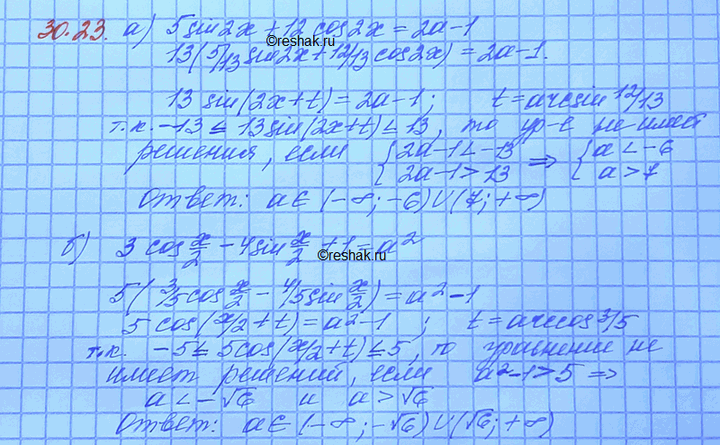 30.23. а) 5 sin 2x + 12 cos 2x = 2a-1
©reshak.ru
13(5/13 sin 2x + 12/13 cos 2x) = 2a-1.
13 sin(2x+t) = 2a-1; t = arcsin 12/13
т.к. -13 ≤ 13 sin(2x+t) ≤ 13, то ур-е не имеет
решения, если { 2a-1 < -13 ⇒ { a < -6
{ 2a-1 > 13 { a > 7
Ответ: a ∈ (-∞; -6) ∪ (7; +∞)
б) 3 cos x/2 - 4 sin x/2 + 1 = a²
©reshak.ru
5(3/5 cos x/2 - 4/5 sin x/2) = a²-1
5 cos(x/2 + t) = a²-1 ; t = arccos 3/5
т.к. -5 ≤ 5 cos(x/2+t) ≤ 5, то уравнение не
имеет решений, если a²-1 > 5 ⇒
a < -√6 и a > √6
Ответ: a ∈ (-∞; -√6) ∪ (√6; +∞)